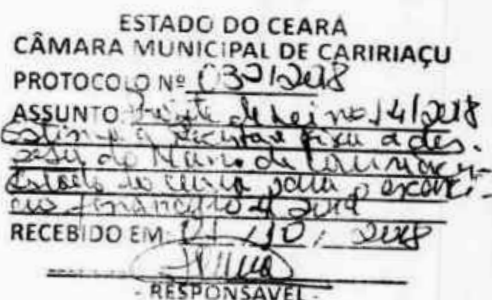 ESTADO DO CEARÁ
CÂMARA MUNICIPAL DE CARIRIAÇU
PROTOCOLO Nº 030/2018
ASSUNTO Projeto de Lei nº 14/2018
Estima a receita e fixa a des-
pesa do de Caririaçu-
Estado do Ceará para o exercí-
cio financeiro de 2019
RECEBIDO EM 01 / 10 / 2018
- RESPONSAVEL -